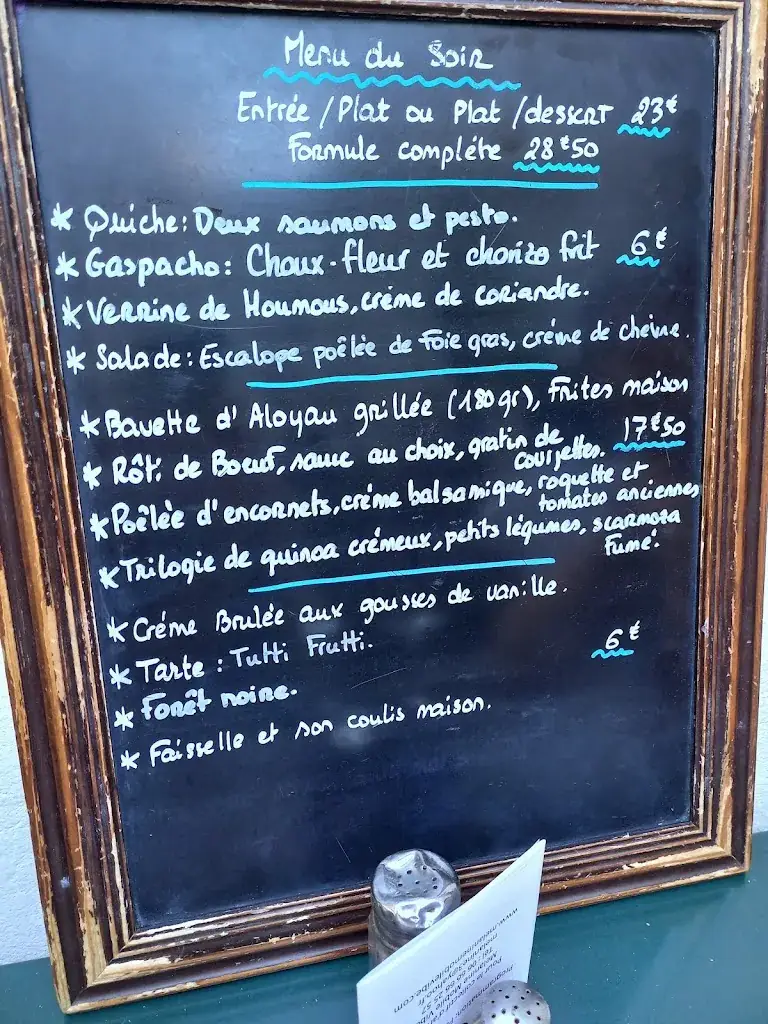 Menu du Soir
Entrée / Plat ou Plat / dessert 23€
Formule complète 28€50
* Quiche: Deux saumons et pesto.
* Gaspacho: Choux-fleur et chorizo frit 6€
* Verrine de Houmous, crème de coriandre.
* Salade: Escalope poêlée de Foie gras, crème de chèvre.
* Bavette d'Aloyau grillée (180gr), Frites maison
* Rôti de Boeuf, sauce au choix, gratin de 17€50
courgettes.
* Poêlée d'encornets, crème balsamique, roquette et
tomates anciennes
* Trilogie de quinoa crémeux, petits légumes, scarmoza
Fumé.
* Créme Brulée aux gousses de vanille.
* Tarte: Tutti Frutti. 6€
* Forêt noire.
* Faisselle et son coulis maison.
www.melaniemobilevibe.com